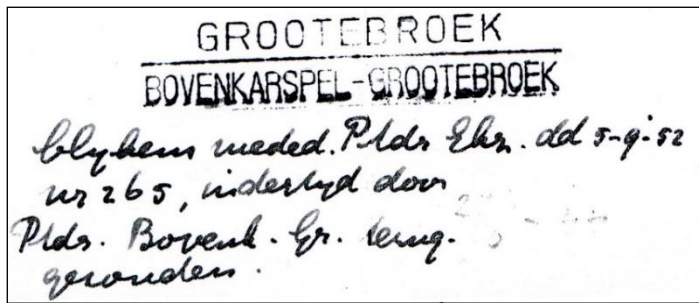 GROOTEBROEK
BOVENKARSPEL-GROOTEBROEK
blykens meded. Ptdr Ekz. dd 5-9-52
nr 265, indertyd door
Ptdr. Bovenk. Gr. terug.
gezonden.